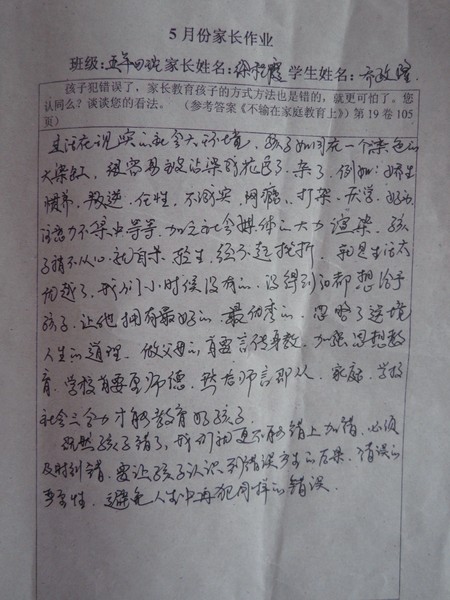 5月份家长作业
班级:五年四班家长姓名:徐 霞学生姓名:
孩子犯错误了，家长教育孩子的方式方法也是错的，就更可怕了。您
认同么？谈谈您的看法。（参考答案《不输在家庭教育上》）第19卷105
页）
生活在现实的社会大环境，孩子如同在一个染色的
大染缸，很容易被沾染的花了、杂了，例如:娇生
惯养、叛逆、任性、不踏实、网瘾、打架、厌学、好动、
注意力不集中等等，加之社会媒体的大力渲染，孩
子稍不从心就自杀、轻生，经不起挫折，就是生活太
优越了，我们小时候没有的，没得到的都想给予
孩子，让他拥有最好的、最优秀的，忽略了逆境
人生的道理，做父母的首要言传身教，加强思想教
育，学校首要重师德，然老师言即从，家庭、学校
社会三合力才能教育好孩子。
既然孩子错了，我们就更不能错上加错，必须
及时纠错，要让孩子认识到错误产生的后果，错误的
严重性，避免人生中再犯同样的错误。